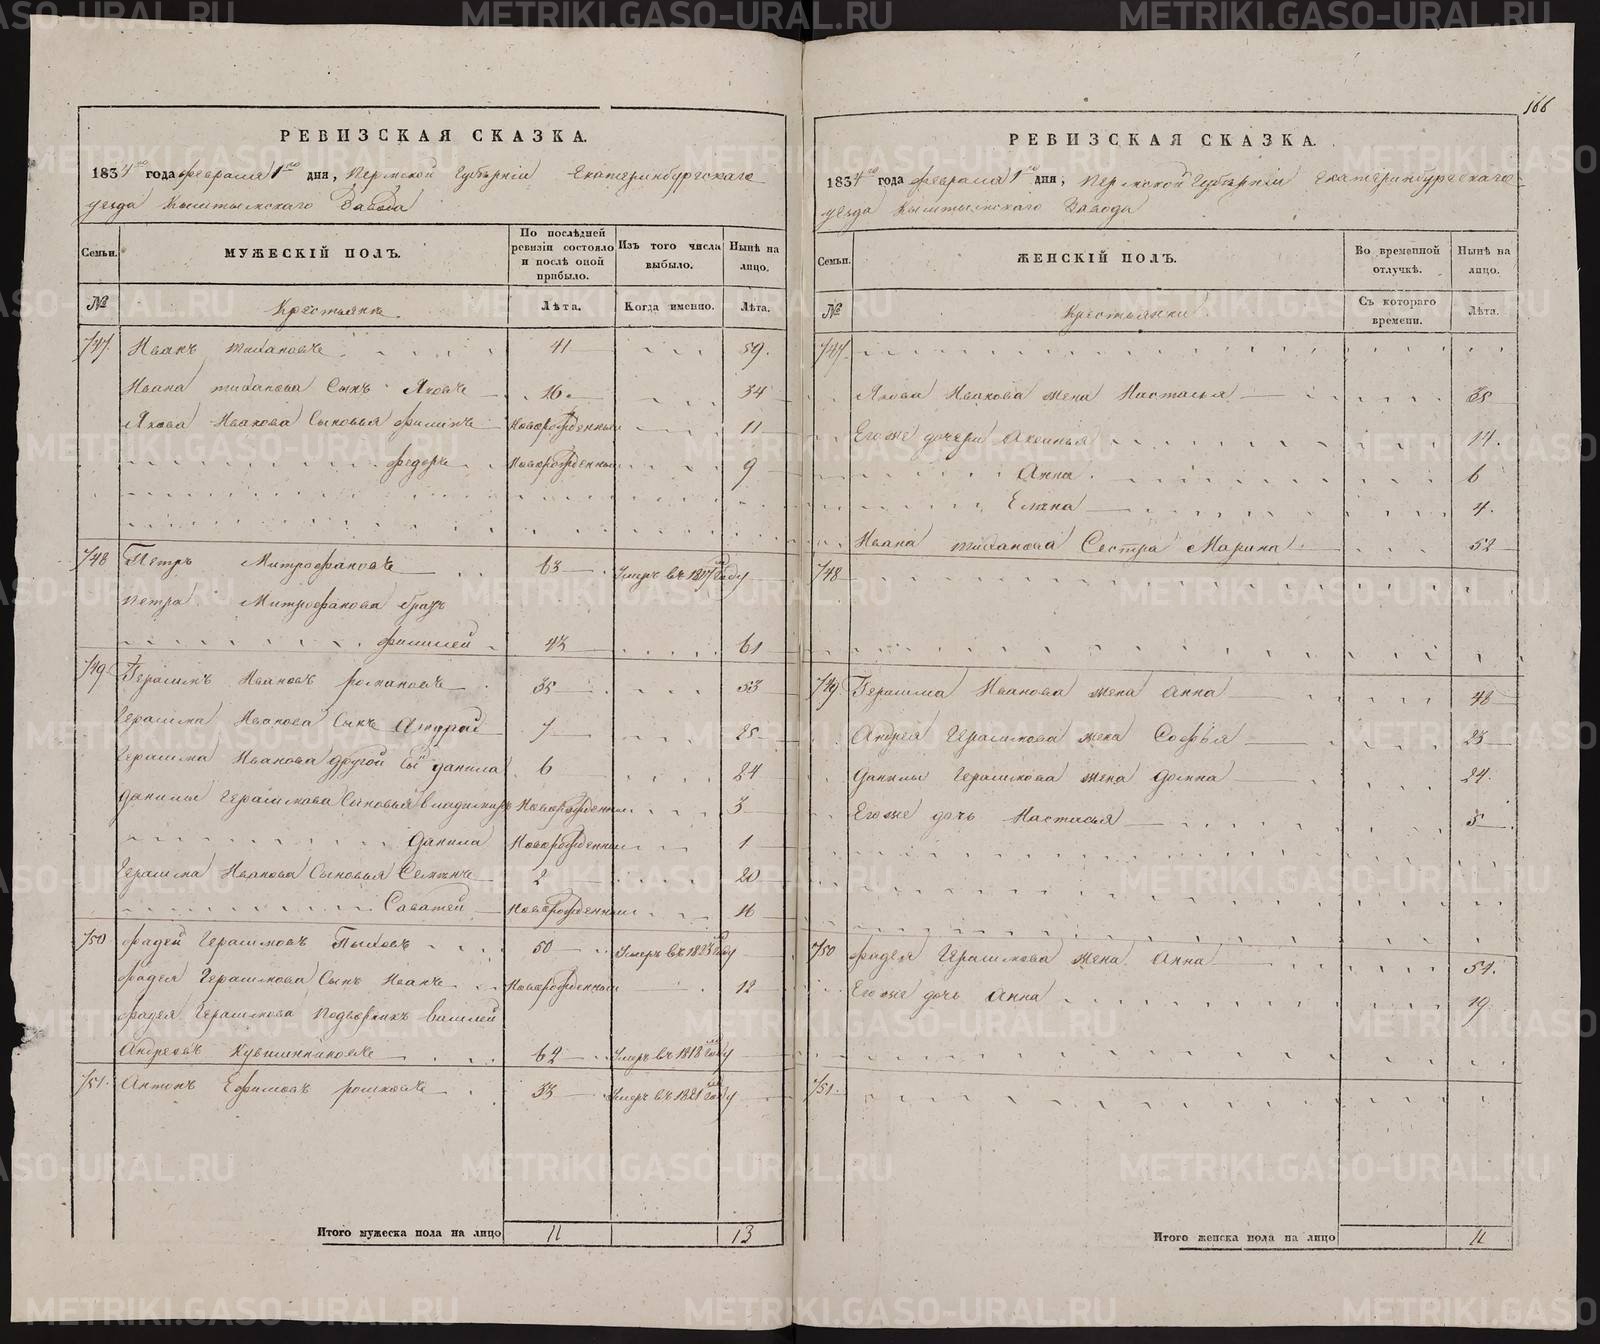 166
РЕВИЗСКАЯ СКАЗКА.
1834го года февраля 1го дня, Пермской Губернiи Екатеринбургскаго
уезда Кыштымскаго Завода
Семьи.
МУЖЕСКІЙ ПОЛЪ.
По послѣдней ревизіи состояло и послѣ оной прибыло.
Изъ того числа выбыло.
Нынѣ на лицо.
№
Крестьянъ
Лѣта.
Когда именно.
Лѣта.
747. Иванъ 41 59.
Ивана Сынъ Яковъ 16 34
Якова Иванова Сыновья новорожденный 11
Федоръ новорожденный 9
748 Петръ Митрофановъ 63 Умеръ въ 1817 году
Петра Митрофанова братъ
43 61
749 Герасимъ Ивановъ романовъ 35 53
Герасима Иванова Сынъ Андрей 7 25
Герасима Иванова другой Сынъ данила 6 24
данилы Герасимова Сыновья владимиръ новорожденный 3
данила новорожденный 1
Герасима Иванова Сыновья Семенъ 2 20
Саватей новорожденный 16
750 фадей Герасимовъ 50 Умеръ въ 1823 году
фадея Герасимова Сынъ Иванъ новорожденный 12
фадея Герасимова василей
Андреевъ 62 Умеръ въ 1818 году
751. Антонъ Ефимовъ 33 Умеръ въ 1821 году
Итого мужеска пола на лицо 11 13
РЕВИЗСКАЯ СКАЗКА.
1834го года февраля 1го дня, Пермской Губернiи Екатеринбургскаго
уезда Кыштымскаго Завода
Семьи.
ЖЕНСКІЙ ПОЛЪ.
Во временной отлучкѣ.
Нынѣ на лицо.
№
Крестьянки
Съ котораго времени.
Лѣта.
747.
Якова Иванова жена Настасья 35
Его же дочери Аксинья 14
Анна 6
Елена 4.
Ивана Сестра Марина 52
748
749 Герасима Иванова жена Анна 48
Андрея Герасимова жена Софья 23
данилы Герасимова жена домна 24.
Его же дочь Настасья 5
750 фадея Герасимова жена Анна 51.
Его же дочь Анна 19.
751.
Итого женска пола на лицо 11
METRIKI.GASO-URAL.RU